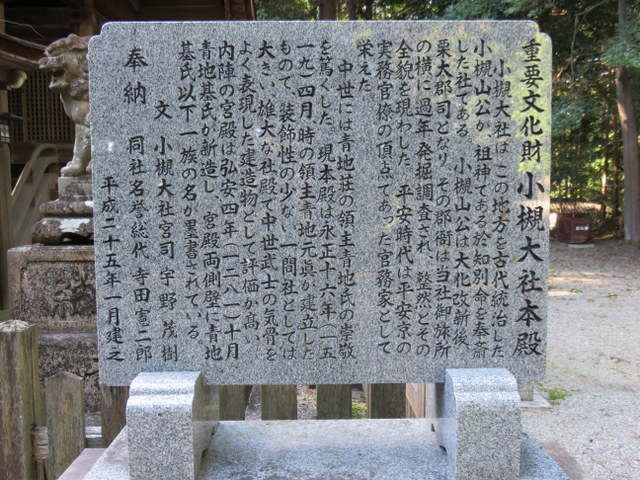 重要文化財 小槻大社本殿
小槻大社は、この地方を古代統治した
小槻山公が、祖神である於知別命を奉斎
した社である。小槻山公は大化改新後、
栗太郡司となり、その郡衙は当社御旅所
の横に過年、発掘調査され、整然とその
全貌を現わした。平安時代は平安京の
実務官僚の頂点であった官務家として
栄えた。
中世には青地荘の領主青地氏の崇敬
を篤くした。現本殿は永正十六年(一五
一九)四月時の領主青地元真が建立した
もので、装飾性の少ない一間社としては
大きい、雄大な社殿で中世武士の気骨を
よく表現した建造物として評価が高い。
内陣の宮殿は弘安四年(一二八一)十月
青地基氏が新造し、宮殿両側壁に青地
基氏以下一族の名が墨書されている。
文 小槻大社宮司 宇野茂樹
奉納 同社名誉総代 寺田憲二郎
平成二十五年一月建之